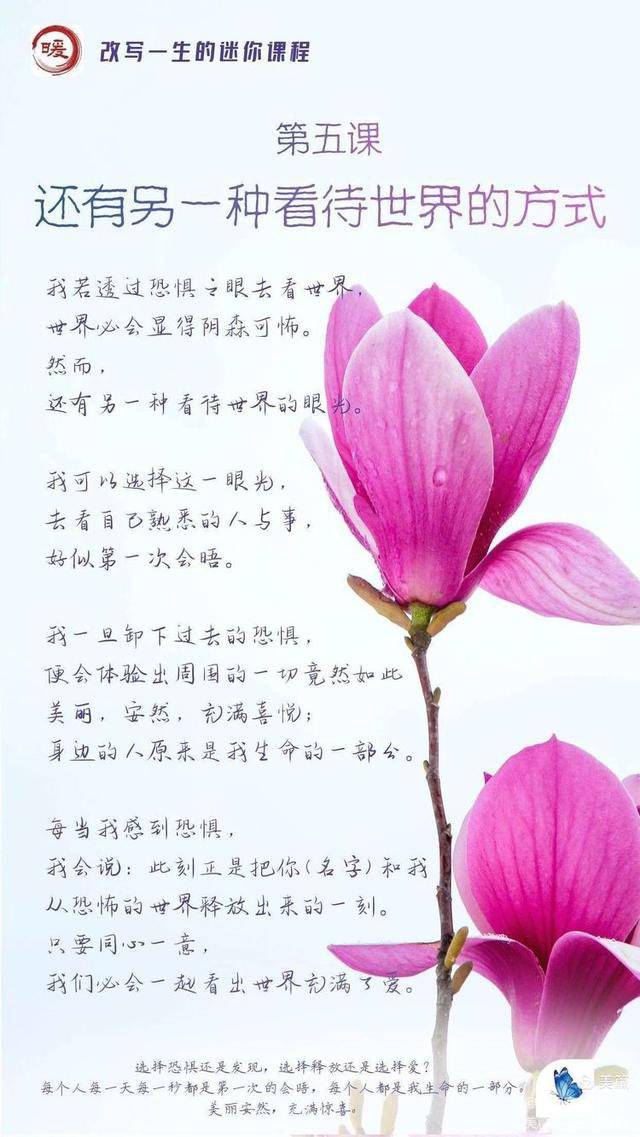 暖
改写一生的迷你课程
第五课
还有另一种看待世界的方式
我若透过恐惧之眼去看世界，
世界必会显得阴森可怖。
然而，
还有另一种看待世界的眼光。
我可以选择这一眼光，
去看自己熟悉的人与事，
好似第一次会晤。
我一旦卸下过去的恐惧，
便会体验出周围的一切竟然如此
美丽，安然，充满喜悦；
身边的人原来是我生命的一部分。
每当我感到恐惧，
我会说：此刻正是把你(名字)和我
从恐怖的世界释放出来的一刻。
只要同心一意，
我们必会一起看出世界充满了爱。
选择恐惧还是发现，选择释放还是选择爱？
每个人每一天每一秒都是第一次的会晤，每个人都是我生命的一部分。
美丽安然，充满惊喜。
美篇